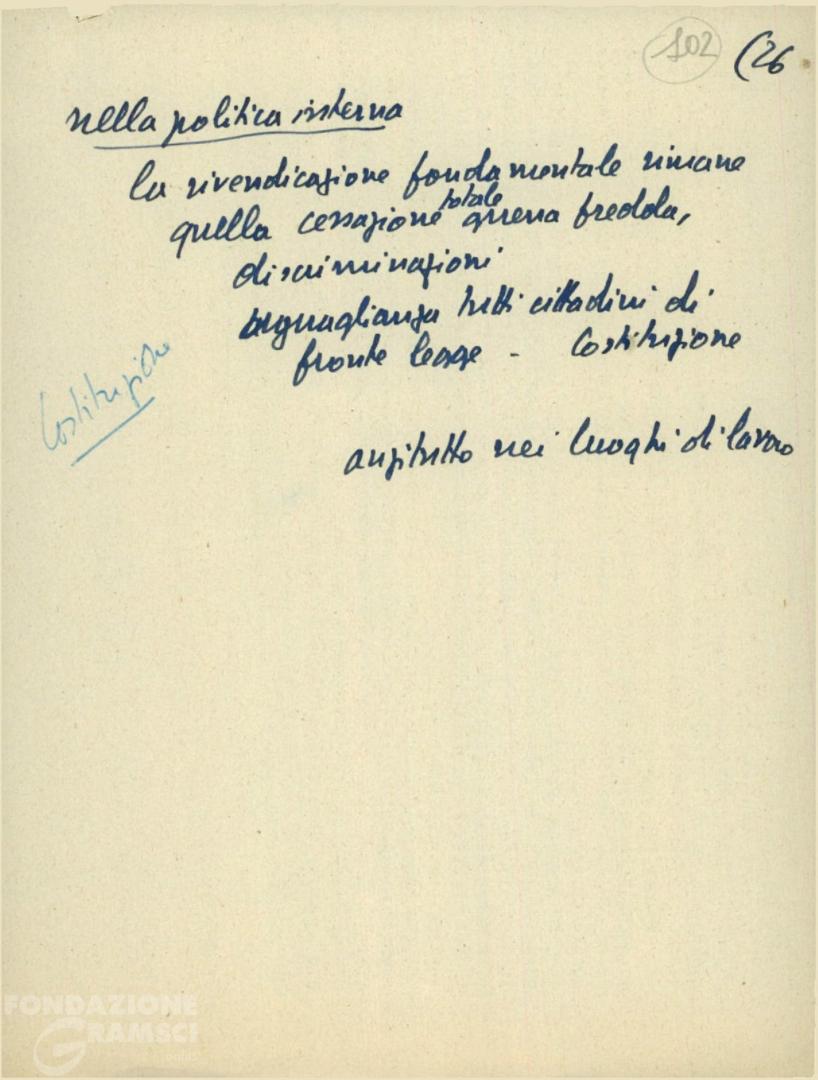 102 (26
nella politica interna
la rivendicazione fondamentale rimane
quella cessazione totale guerra fredda,
discriminazioni
eguaglianza tutti cittadini di
fronte legge - Costituzione
Costituzione
anzitutto nei luoghi di lavoro
FONDAZIONE
GRAMSCI